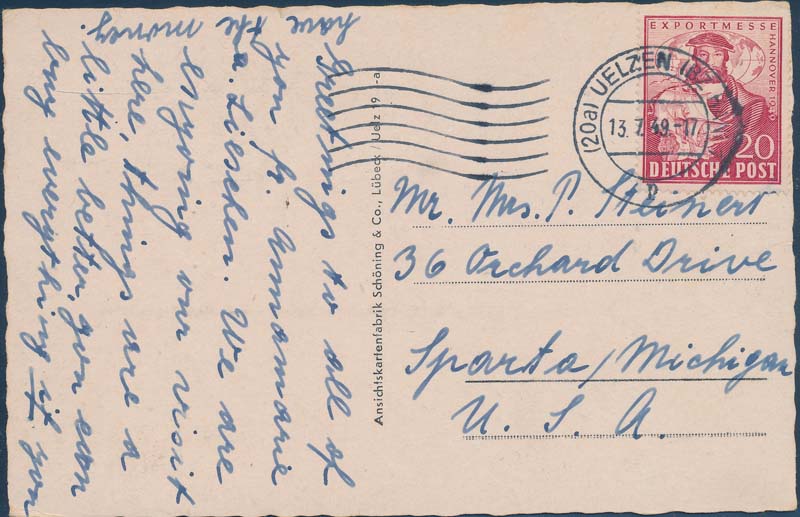 Greetings to all of
you fr. Annamarie
u. Lieschen. We are
enjoying our visit
here, things are a
little better, you can
buy everything if you
have the
money.
Ansichtskartenfabrik Schöning & Co., Lübeck / Uelz 19 -a
EXPORTMESSE
HANNOVER 1949
20
DEUTSCHE POST
(20a) UELZEN
13.7.49.-17
b
Mr. Mrs. P. Steinert
36 Orchard Drive
Sparta, Michigan
U. S. A.